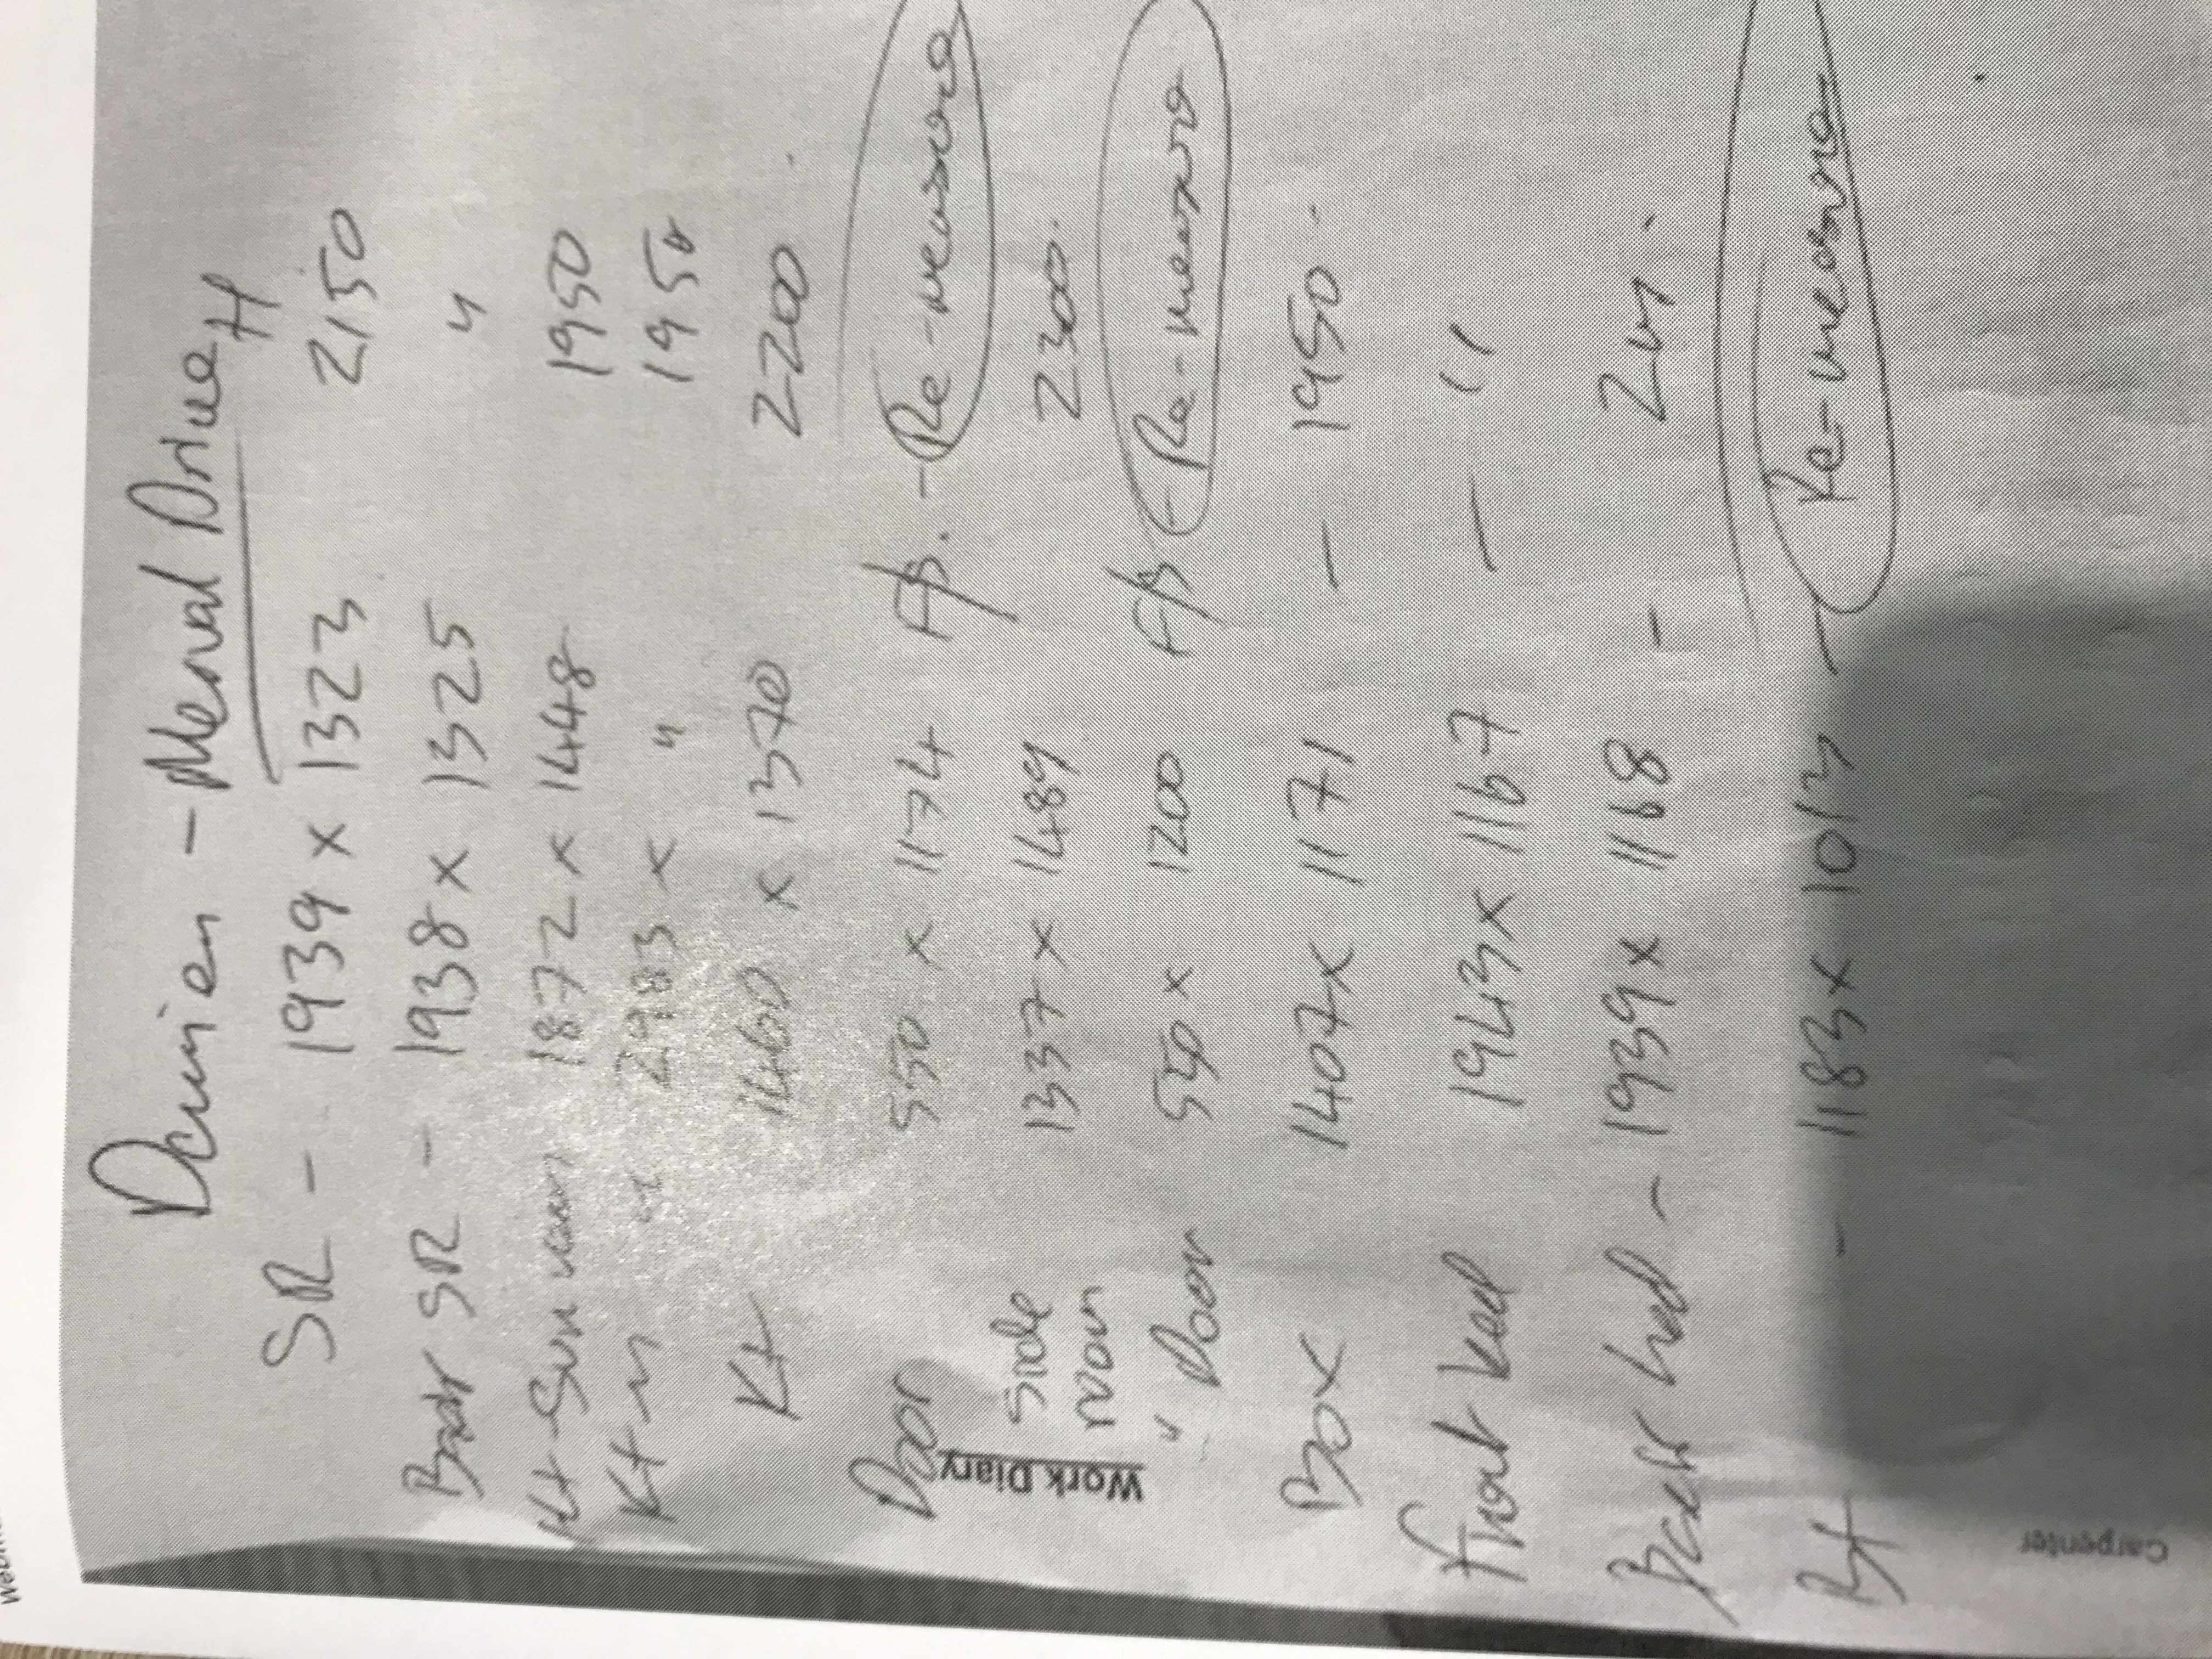 Damien - Merval Drive
H
SR - 1939 x 1323 2150
Back SR - 1938 x 1325 "
Kt - Sun room 1872 x 1448 1950
Kt " " 2983 x " 1950
Kt 1460 x 1370 2200
Door 550 x 1174 - Re-measure
Side room 1337 x 1489 2300
" Door 550 x 1200 - Re-measure
Box 1407 x 1171 - 1950
front bed 1943 x 1167 - "
Back bed - 1939 x 1168 - 2m
Bt - 1183 x 1013 - Re-measure
Work Diary
Carpenter